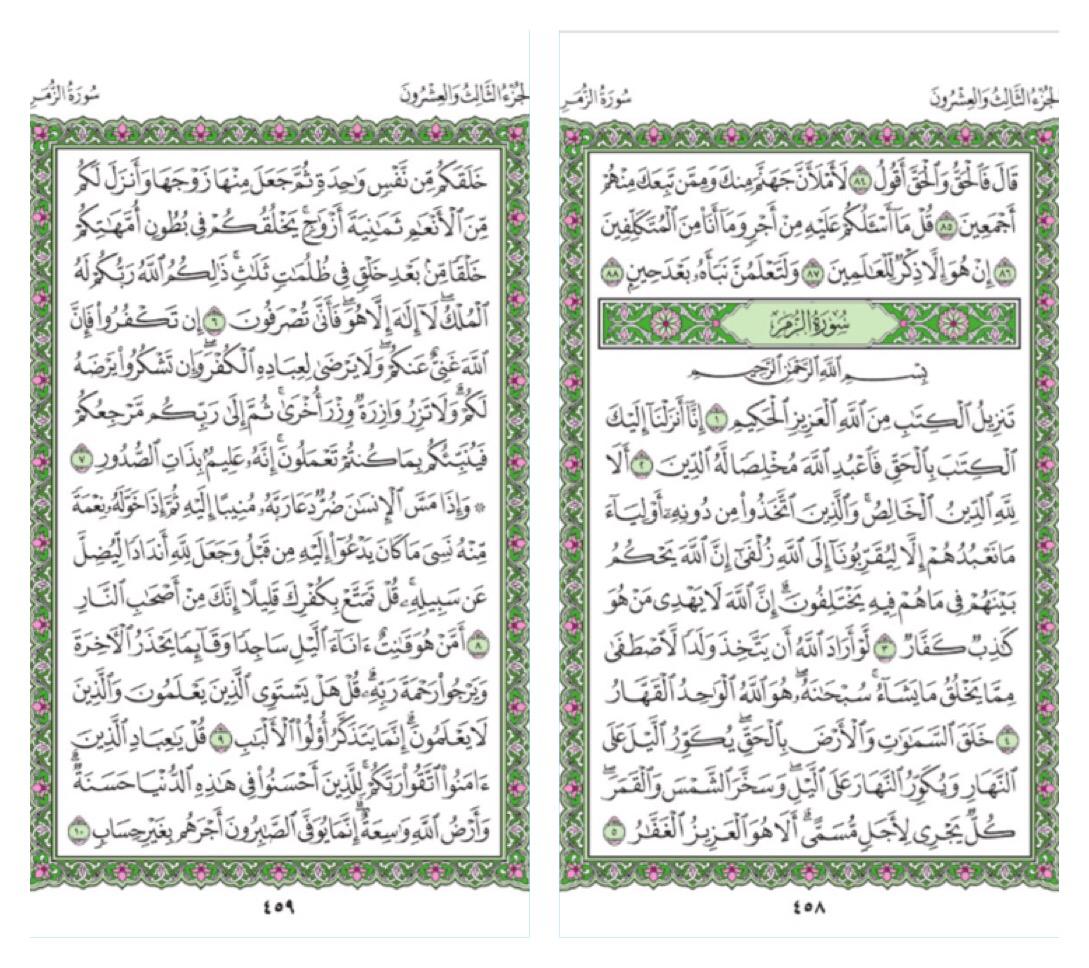 الجُزْءُ الثَّالِثُ وَالعِشْرُونَ
سُورَةُ الزُّمَر
قَالَ فَٱلْحَقُّ وَٱلْحَقَّ أَقُولُ ٨٤ لَأَمْلَأَنَّ جَهَنَّمَ مِنكَ وَمِمَّن تَبِعَكَ مِنْهُمْ
أَجْمَعِينَ ٨٥ قُلْ مَآ أَسْـَٔلُكُمْ عَلَيْهِ مِنْ أَجْرٍ وَمَآ أَنَا۠ مِنَ ٱلْمُتَكَلِّفِينَ
٨٦ إِنْ هُوَ إِلَّا ذِكْرٌ لِّلْعَـٰلَمِينَ ٨٧ وَلَتَعْلَمُنَّ نَبَأَهُۥ بَعْدَ حِينٍۭ ٨٨
سُورَةُ الزُّمَرِ
بِسْمِ ٱللَّهِ ٱلرَّحْمَـٰنِ ٱلرَّحِيمِ
تَنزِيلُ ٱلْكِتَـٰبِ مِنَ ٱللَّهِ ٱلْعَزِيزِ ٱلْحَكِيمِ ١ إِنَّآ أَنزَلْنَآ إِلَيْكَ
ٱلْكِتَـٰبَ بِٱلْحَقِّ فَٱعْبُدِ ٱللَّهَ مُخْلِصًا لَّهُ ٱلدِّينَ ٢ أَلَا
لِلَّهِ ٱلدِّينُ ٱلْخَالِصُ ۚ وَٱلَّذِينَ ٱتَّخَذُوا۟ مِن دُونِهِۦٓ أَوْلِيَآءَ
مَا نَعْبُدُهُمْ إِلَّا لِيُقَرِّبُونَآ إِلَى ٱللَّهِ زُلْفَىٰٓ إِنَّ ٱللَّهَ يَحْكُمُ
بَيْنَهُمْ فِى مَا هُمْ فِيهِ يَخْتَلِفُونَ ۗ إِنَّ ٱللَّهَ لَا يَهْدِى مَنْ هُوَ
كَـٰذِبٌ كَفَّارٌ ٣ لَّوْ أَرَادَ ٱللَّهُ أَن يَتَّخِذَ وَلَدًا لَّٱصْطَفَىٰ
مِمَّا يَخْلُقُ مَا يَشَآءُ ۚ سُبْحَـٰنَهُۥ ۖ هُوَ ٱللَّهُ ٱلْوَٰحِدُ ٱلْقَهَّارُ
٤ خَلَقَ ٱلسَّمَـٰوَٰتِ وَٱلْأَرْضَ بِٱلْحَقِّ ۖ يُكَوِّرُ ٱلَّيْلَ عَلَى
ٱلنَّهَارِ وَيُكَوِّرُ ٱلنَّهَارَ عَلَى ٱلَّيْلِ ۖ وَسَخَّرَ ٱلشَّمْسَ وَٱلْقَمَرَ ۖ
كُلٌّ يَجْرِى لِأَجَلٍ مُّسَمًّى ۗ أَلَا هُوَ ٱلْعَزِيزُ ٱلْغَفَّـٰرُ ٥
٤٥٨
الجُزْءُ الثَّالِثُ وَالعِشْرُونَ
سُورَةُ الزُّمَر
خَلَقَكُم مِّن نَّفْسٍ وَٰحِدَةٍ ثُمَّ جَعَلَ مِنْهَا زَوْجَهَا وَأَنزَلَ لَكُم
مِّنَ ٱلْأَنْعَـٰمِ ثَمَـٰنِيَةَ أَزْوَٰجٍ ۚ يَخْلُقُكُمْ فِى بُطُونِ أُمَّهَـٰتِكُمْ
خَلْقًا مِّنۢ بَعْدِ خَلْقٍ فِى ظُلُمَـٰتٍ ثَلَـٰثٍ ۚ ذَٰلِكُمُ ٱللَّهُ رَبُّكُمْ لَهُ
ٱلْمُلْكُ ۖ لَآ إِلَـٰهَ إِلَّا هُوَ ۖ فَأَنَّىٰ تُصْرَفُونَ ٦ إِن تَكْفُرُوا۟ فَإِنَّ
ٱللَّهَ غَنِىٌّ عَنكُمْ ۖ وَلَا يَرْضَىٰ لِعِبَادِهِ ٱلْكُفْرَ ۖ وَإِن تَشْكُرُوا۟ يَرْضَهُ
لَكُمْ ۗ وَلَا تَزِرُ وَازِرَةٌ وِزْرَ أُخْرَىٰ ۗ ثُمَّ إِلَىٰ رَبِّكُم مَّرْجِعُكُمْ
فَيُنَبِّئُكُم بِمَا كُنتُمْ تَعْمَلُونَ ۚ إِنَّهُۥ عَلِيمٌۢ بِذَاتِ ٱلصُّدُورِ ٧
۞ وَإِذَا مَسَّ ٱلْإِنسَـٰنَ ضُرٌّ دَعَا رَبَّهُۥ مُنِيبًا إِلَيْهِ ثُمَّ إِذَا خَوَّلَهُۥ نِعْمَةً
مِّنْهُ نَسِىَ مَا كَانَ يَدْعُوٓا۟ إِلَيْهِ مِن قَبْلُ وَجَعَلَ لِلَّهِ أَندَادًا لِّيُضِلَّ
عَن سَبِيلِهِۦ ۚ قُلْ تَمَتَّعْ بِكُفْرِكَ قَلِيلًا ۖ إِنَّكَ مِنْ أَصْحَـٰبِ ٱلنَّارِ
٨ أَمَّنْ هُوَ قَـٰنِتٌ ءَانَآءَ ٱلَّيْلِ سَاجِدًا وَقَآئِمًا يَحْذَرُ ٱلْـَٔاخِرَةَ
وَيَرْجُوا۟ رَحْمَةَ رَبِّهِۦ ۗ قُلْ هَلْ يَسْتَوِى ٱلَّذِينَ يَعْلَمُونَ وَٱلَّذِينَ
لَا يَعْلَمُونَ ۗ إِنَّمَا يَتَذَكَّرُ أُو۟لُوا۟ ٱلْأَلْبَـٰبِ ٩ قُلْ يَـٰعِبَادِ ٱلَّذِينَ
ءَامَنُوا۟ ٱتَّقُوا۟ رَبَّكُمْ ۚ لِلَّذِينَ أَحْسَنُوا۟ فِى هَـٰذِهِ ٱلدُّنْيَا حَسَنَةٌ ۗ
وَأَرْضُ ٱللَّهِ وَٰسِعَةٌ ۗ إِنَّمَا يُوَفَّى ٱلصَّـٰبِرُونَ أَجْرَهُم بِغَيْرِ حِسَابٍ ١٠
٤٥٩